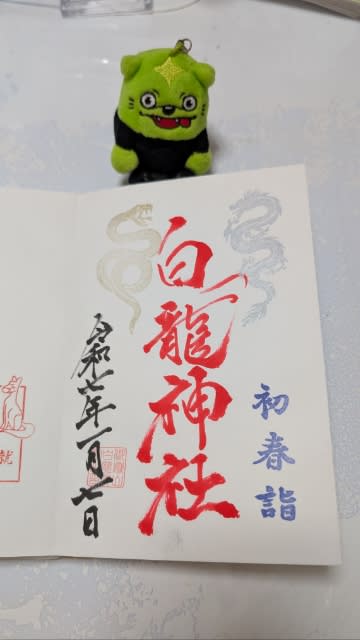 初春詣
白龍神社
令和七年一月七日
就